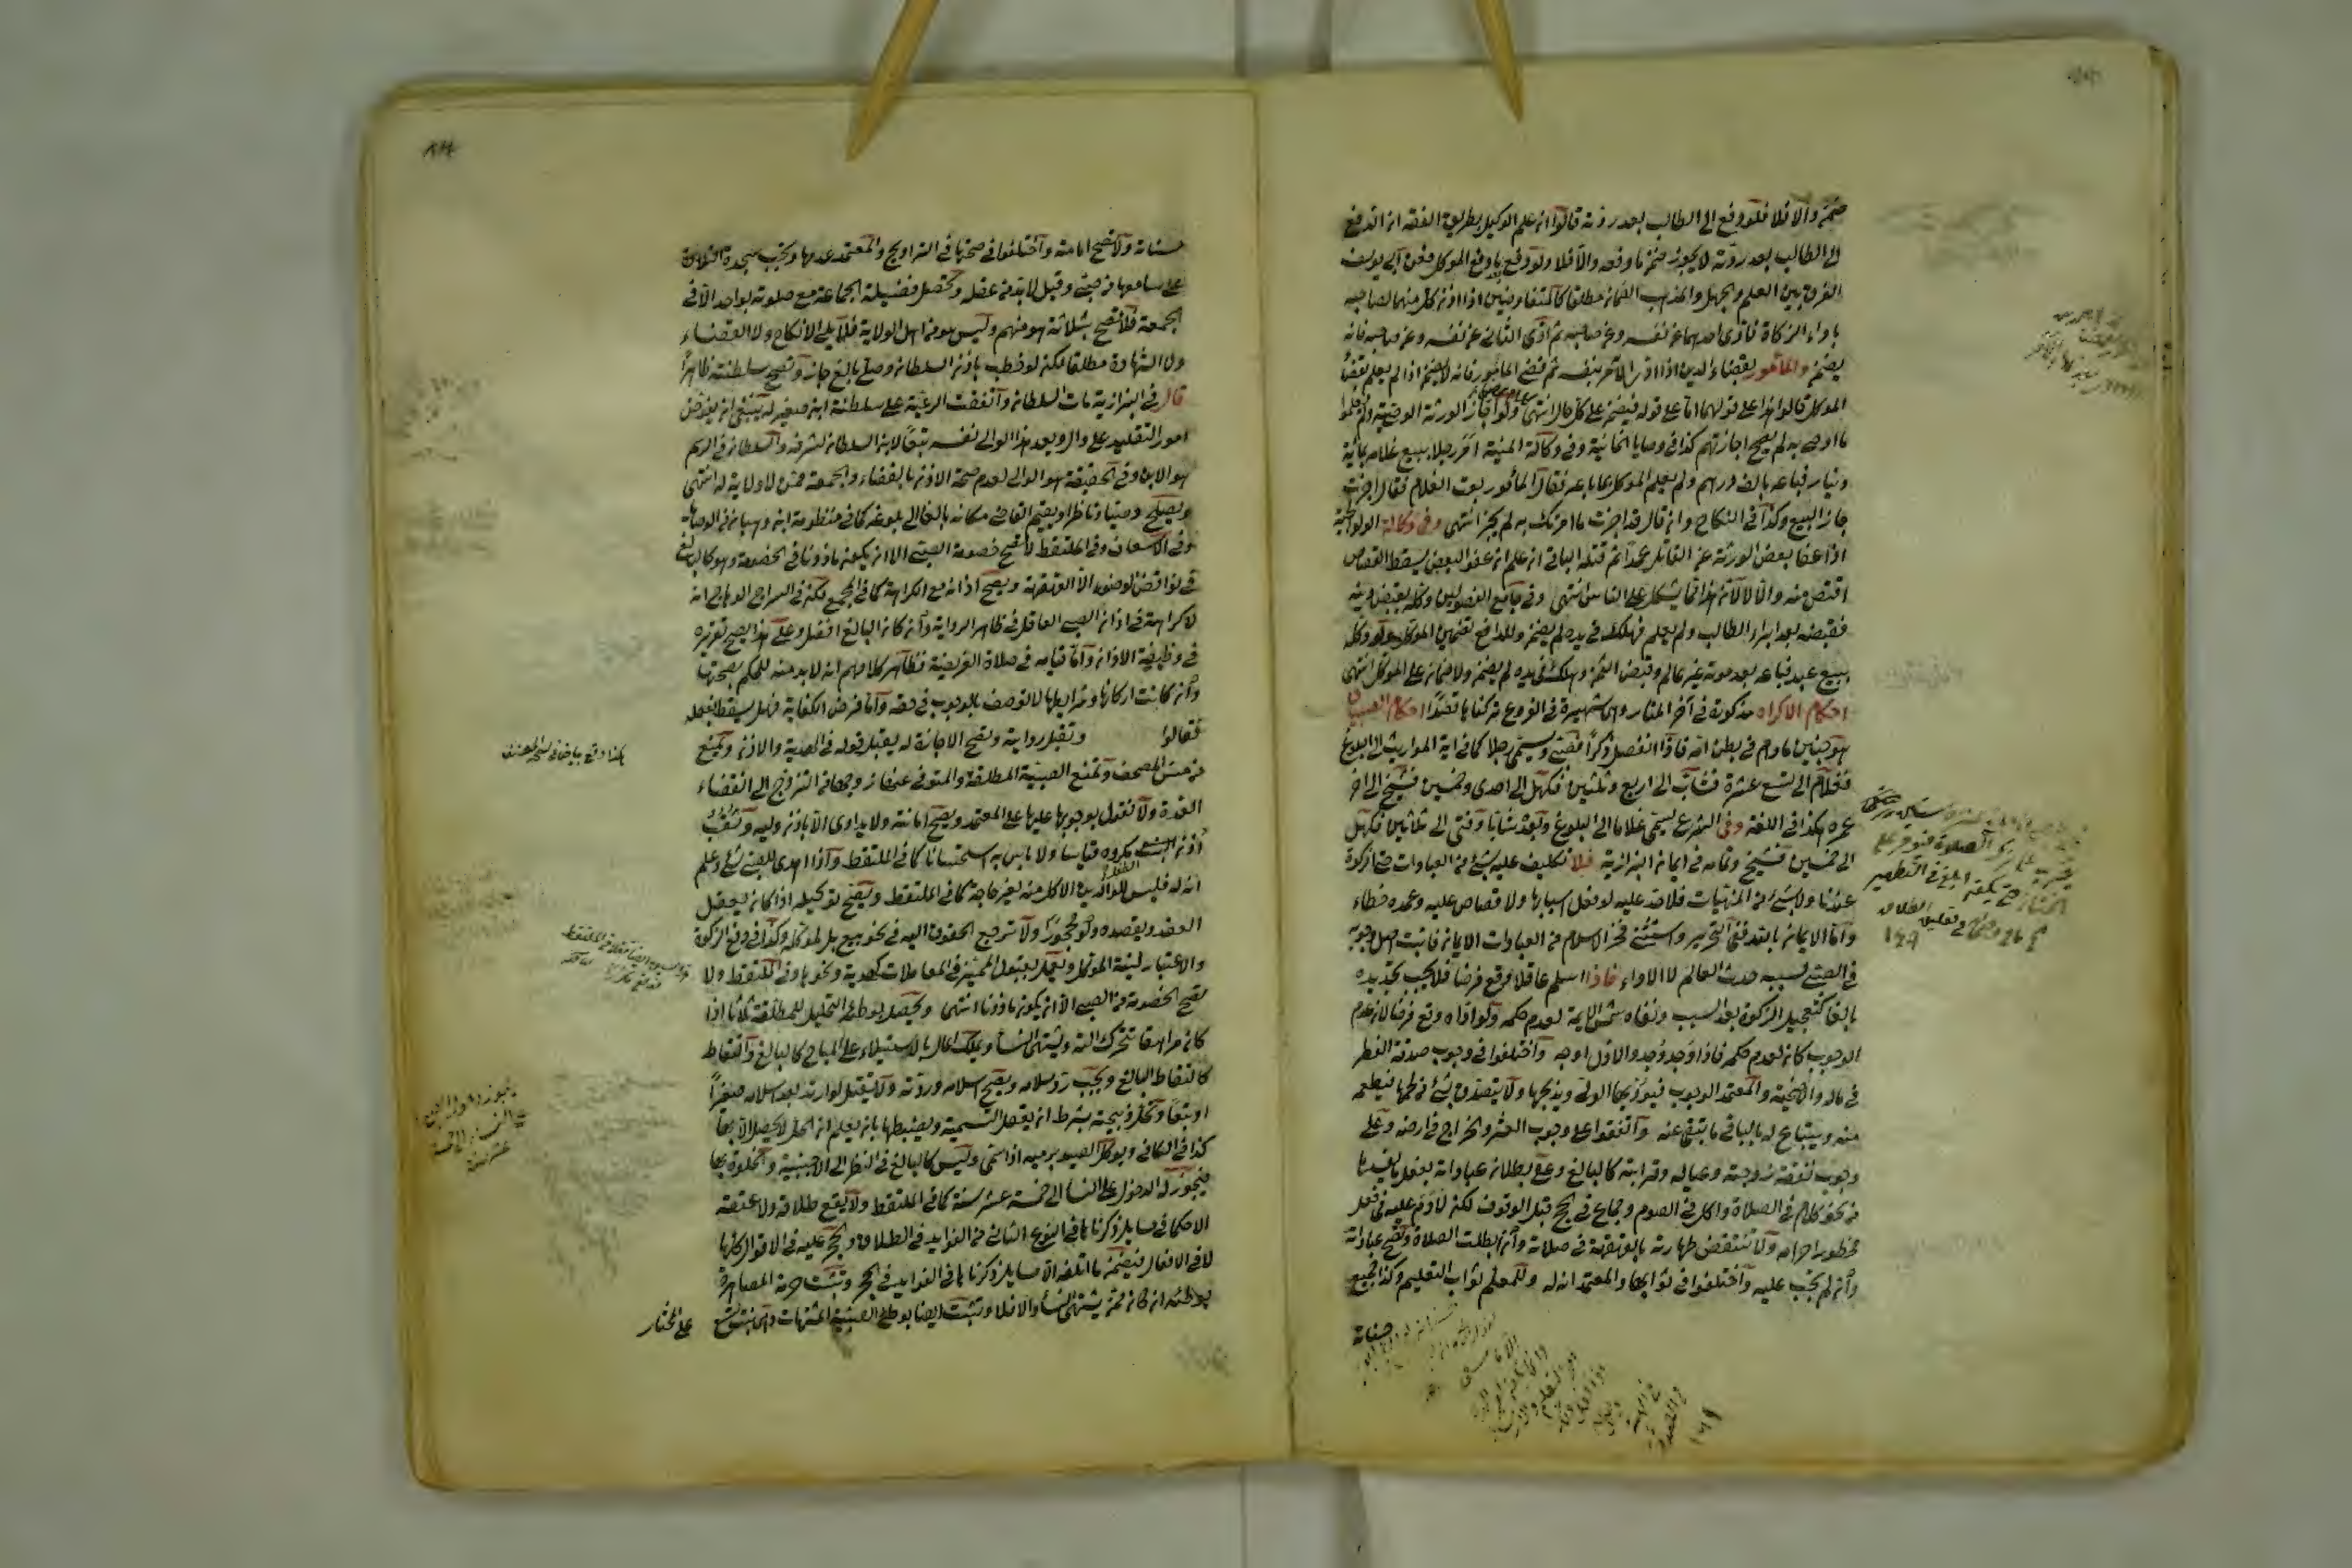 ضمن والا فلا فلو دفع الى الطالب بعد ردته قالوا ان علم الوكيل بطريق الفقه ان الدفع
الى الطالب بعد ردته لا يجوز ضمن ما دفعه والا فلا ولو دفع بعد دفع الموكل فعن ابي يوسف
الفرق بين العلم والجهل والمذهب الضمان مطلقا كالمتفاوضين اذا اذن كل منهما لصاحبه
باداء الزكاة فادى احدهما عن نفسه وعن صاحبه ثم ادى الثاني عن نفسه وعن صاحبه فانه
يضمن والمأمور بقضاء الدين اذا ادى الآمر بنفسه ثم قضى المأمور فانه لا يضمن اذا لم يعلم بقضاء
الموكل قالوا هذا على قولهما اما على قوله فيضمن على كل حال انتهى ولو اجاز الورثة الوصية ولم يعلموا
ما اوصى به لم يصح اجازتهم كذا في وصايا الخانية وفي وكالة المنية امر رجلا ببيع غلامه بمائة
دينار فباعه بالف درهم ولم يعلم الموكل بما باعه فقال المأمور بعت الغلام فقال اجزت
جاز البيع وكذا في النكاح وان قال قد اجزت ما امرتك به لم يجز انتهى وفي وكالة الولوالجية
اذا عفا بعض الورثة عن القاتل عمدا ثم قتله الباقي ان علم ان عفو البعض يسقط القصاص
اقتص منه والا لا لان هذا مما يشكل على الناس انتهى وفي جامع الفصولين وكله بقبض دينه
فقبضه بعد ابراء الطالب ولم يعلم فهلك في يده لم يضمن وللدافع تضمين الموكل ولو وكله
ببيع عبد فباعه بعد موته غير عالم وقبض الثمن وهلك في يده لم يضمن ولا ضمان على الموكل انتهى
احكام الاكراه مذكورة في آخر المنار وهي شهيرة في الفروع تركناها قصدا احكام الصبيان
هو جنين ما دام في بطن امه فاذا انفصل ذكرا فصبي ويسمى رجلا كما في اية المواريث الى البلوغ
فغلام الى تسع عشرة فشاب الى اربع وثلثين فكهل الى احدى وخمسين فشيخ الى اخر
عمره هكذا في اللغة وفي الشرع يسمى غلاما الى البلوغ وبعده شابا وفتى الى ثلاثين فكهل
الى خمسين فشيخ وتمامه في ايمان البزازية فلا تكليف عليه بشئ من العبادات حتى الزكوة
عندنا ولا بشئ من المنهيات فلا حد عليه لو فعل اسبابها ولا قصاص عليه وعمده خطاء
واما الايمان بالله ففي التحرير واستثنى فخر الاسلام من العبادات الايمان فاثبت اصل وجوبه
في الصبي لسببه حدث العالم لا الاداء فاذا اسلم عاقلا وقع فرضا فلا يجب تجديده
بالغا كتعجيل الزكوة بعد السبب ونفاه شمس الايمة لعدم حكمه ولو اداه وقع فرضا لان عدم
الوجوب كان لعدم حكمه فاذا وجد وجد والاول اوجه واختلفوا في وجوب صدقة الفطر
في ماله والاضحية والمعتمد الوجوب فيؤديها الولي ويذبحها ولا يتصدق بشئ من لحمها فيطعمه
منه ويبتاع له بالباقي ما تبقى عينه واتفقوا على وجوب العشر والخراج في ارضه وعلى
وجوب نفقة زوجته وعياله وقرابته كالبالغ وعلى بطلان عباداته بفعل ما يفسدها
من نحو كلام في الصلاة واكل في الصوم وجماع في حج قبل الوقوف لكن لا دم عليه في فعل
محظور احرامه ولا تنتقض طهارته بالقهقهة في صلاته وان ابطلت الصلاة وتصح عباداته
وان لم تجب عليه واختلفوا في ثوابها والمعتمد انه له وللمعلم ثواب التعليم وكذا جميع
حسناته ولا تصح امامته واختلفوا في صحتها في التراويح والمعتمد عدمها وتجب سجدة التلاوة
على سامعها من صبي وقيل لا بد من عقله وتحصل فضيلة الجماعة مع صلوته بواحد الا في
الجمعة فلا تصح بثلاثة هو منهم وليس هو من اهل الولاية فلا يلي الانكاح ولا القضاء
ولا الشهادة مطلقا لكن لو خطب باذن السلطان وصلى بالغ جاز وتصح سلطنته ظاهرا
قال في البزازية مات السلطان واتفقت الرعية على سلطنة ابن صغير له ينبغي ان يفوض
امور التقليد على وال ويعد هذا الوالي نفسه تبعا لابن السلطان لشرفه والسلطان في الرسم
هو الابن وفي الحقيقة هو الوالي لعدم صحة الاذن بالقضاء والجمعة ممن لا ولاية له انتهى
ويصلح وصيا وناظرا ويقيم القاضي مكانه بالغا الى بلوغه كما في منظومة ابن وهبان في الوصايا
وفي الاسعاف وفي الملتقط لا تصح خصومة الصبي الا ان يكون ماذونا في الخصومة وهو كالبالغ
في نواقض الوضوء الا القهقهة ويصح اذانه مع الكراهة كما في المجمع لكن في السراج الوهاج انه
لا كراهة في اذان الصبي العاقل في ظاهر الرواية وان كان البالغ افضل وعلى هذا يصح تقريره
في وظيفة الاذان واما قيامه في صلاة الفريضة فظاهر كلامهم انه لا بد منه للحكم بصحتها
وان كانت اركانها وشرايطها لا توصف بالوجوب في حقه واما فرض الكفاية فهل يسقط بفعله
فقالوا وتقبل روايته وتصح الاجازة له يقبل قوله في الهدية والاذن ويمنع
هكذا وقع بياض في نسخ المصنف
من مس المصحف وتمنع الصبية المطلقة والمتوفى عنها زوجها في التزوج الى انقضاء
العدة ولا نقول بوجوبها عليها على المعتمد ويصح امانته ولا يداوى الا باذن وليه وثقب
اذن البنت الطفل مكروه قياسا ولا باس به استحسانا كما في الملتقط واذا اهدي للصبي شئ وعلم
انه له فليس للوالدين الاكل منه بغير حاجة كما في الملتقط ويصح توكيله اذا كان يعقل
العقد ويقصده ولو محجورا ولا ترجع الحقوق اليه في نحو بيع بل لموكله وكذا في دفع الزكوة
والاعتبار لنية الموكل ويعمل بقول المميز في المعاملات كهدية ونحوها وفي الملتقط ولا
تصح الخصومة من الصبي الا ان يكون ماذونا انتهى ويحصل بوطئه التحليل للمطلقة ثلاثا اذا
كان مراهقا تتحرك آلته ويشتهي النساء ويملك المال بالاستيلاء على المباح كالبالغ والتقاطه
كالتقاط البالغ ويجب رد سلامه ويصح اسلامه وردته ولا يقتل لو ارتد بعد اسلامه صغيرا
او تبعا وتحل ذبيحته بشرط ان يعقل التسمية ويضبطها بان يعلم ان الحل لا يحصل الا بها
كذا في الكافي ويوكل الصيد برميه اذا سمى وليس كالبالغ في النظر الى الاجنبية والخلوة بها
فيجوز له الدخول على النساء الى خمسة عشر سنة كما في الملتقط ولا يقع طلاقه ولا عتقه
الا حكما في مسايل ذكرناها في النوع الثاني من الفوايد في الطلاق ويحجر عليه في الاقوال كلها
لا في الافعال فيضمن ما اتلفه الا مسايل ذكرناها في الفوايد في الحجر وتثبت حرمة المصاهرة
بوطئه ان كان ممن يشتهي النساء والا فلا وتثبت ايضا بوطئ الصبية المشتهاة وهي بنت تسع
على المختار